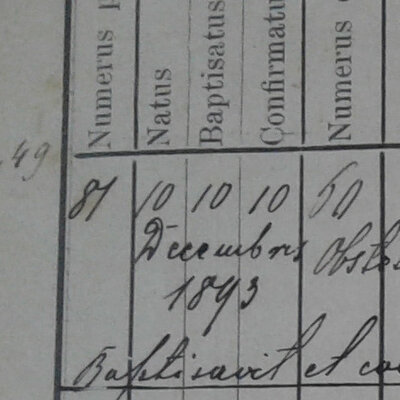 Numerus
Natus
Baptisatus
Confirmatu
Numerus
49
81 10 10 10 60
Decembris
1893
Baptisavit et